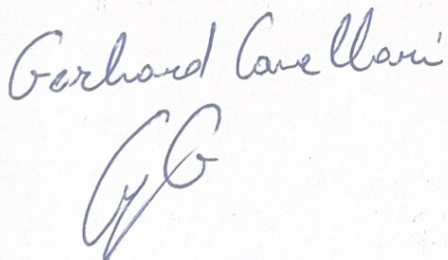 Gerhard Cavallari
GG